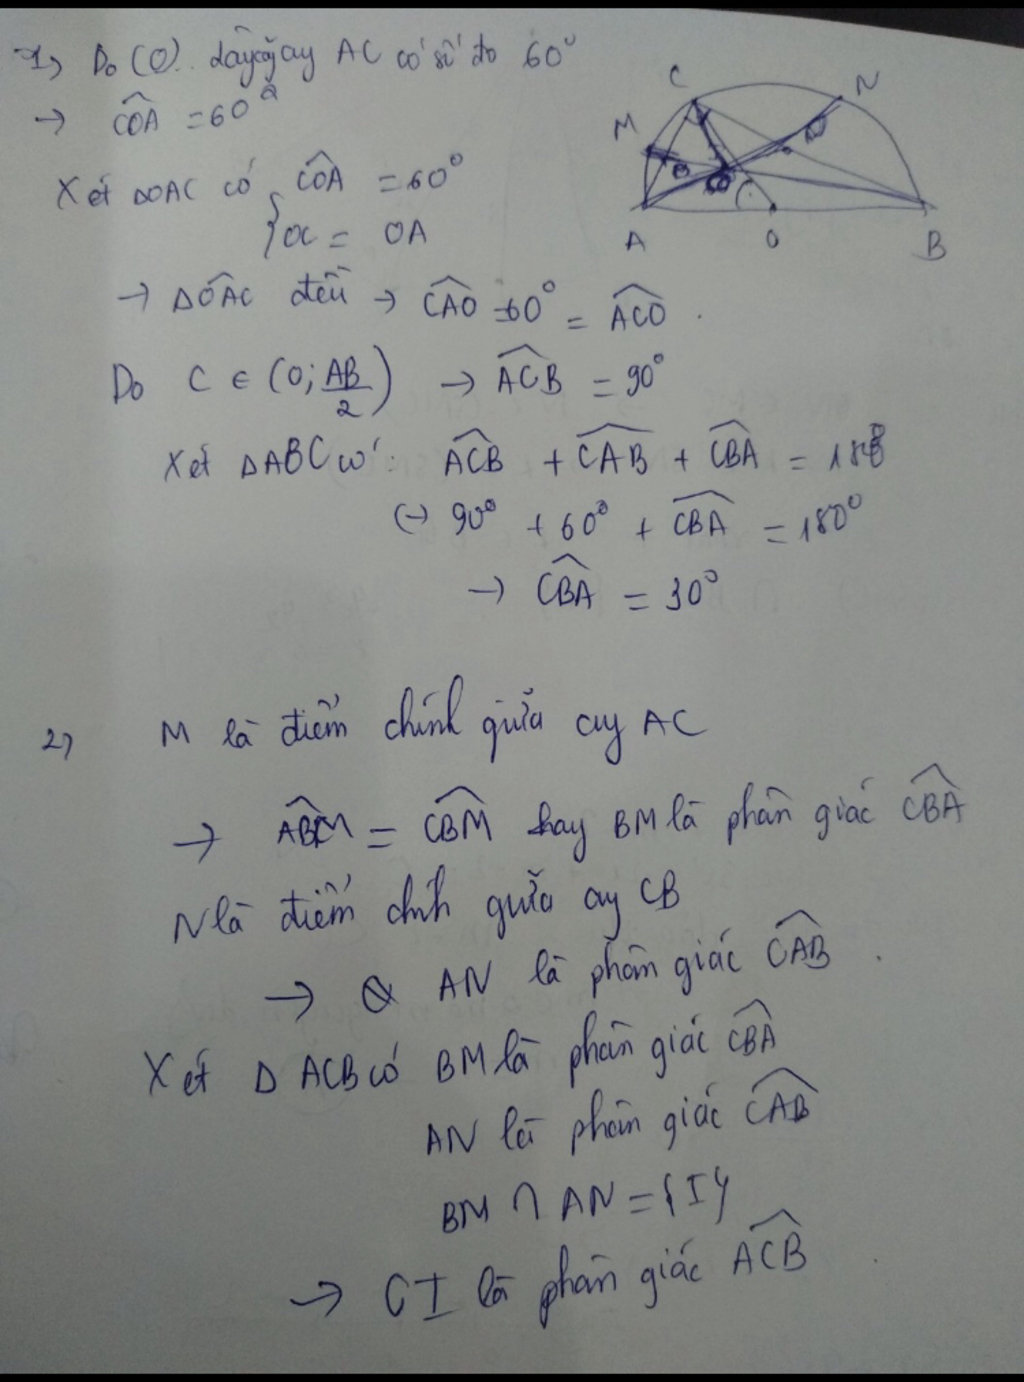 1, Do (O). dây cung AC có số đo 60°
→ COA = 60°
Xét ΔOAC có { COA = 60°
OC = OA
→ ΔOAC đều → CAO = 60° = ACO.
Do C ∈ (O; AB/2) → ACB = 90°
Xét ΔABC có: ACB + CAB + CBA = 180
(→ 90° + 60° + CBA = 180°
→ CBA = 30°
2, M là điểm chính giữa cung AC
→ ABM = CBM hay BM là phân giác CBA
N là điểm chính giữa cung CB
→ AN là phân giác CAB.
Xét Δ ACB có BM là phân giác CBA
AN là phân giác CAB
BM ∩ AN = {I}
→ CI là phân giác ACB
C
N
M
A
O
B